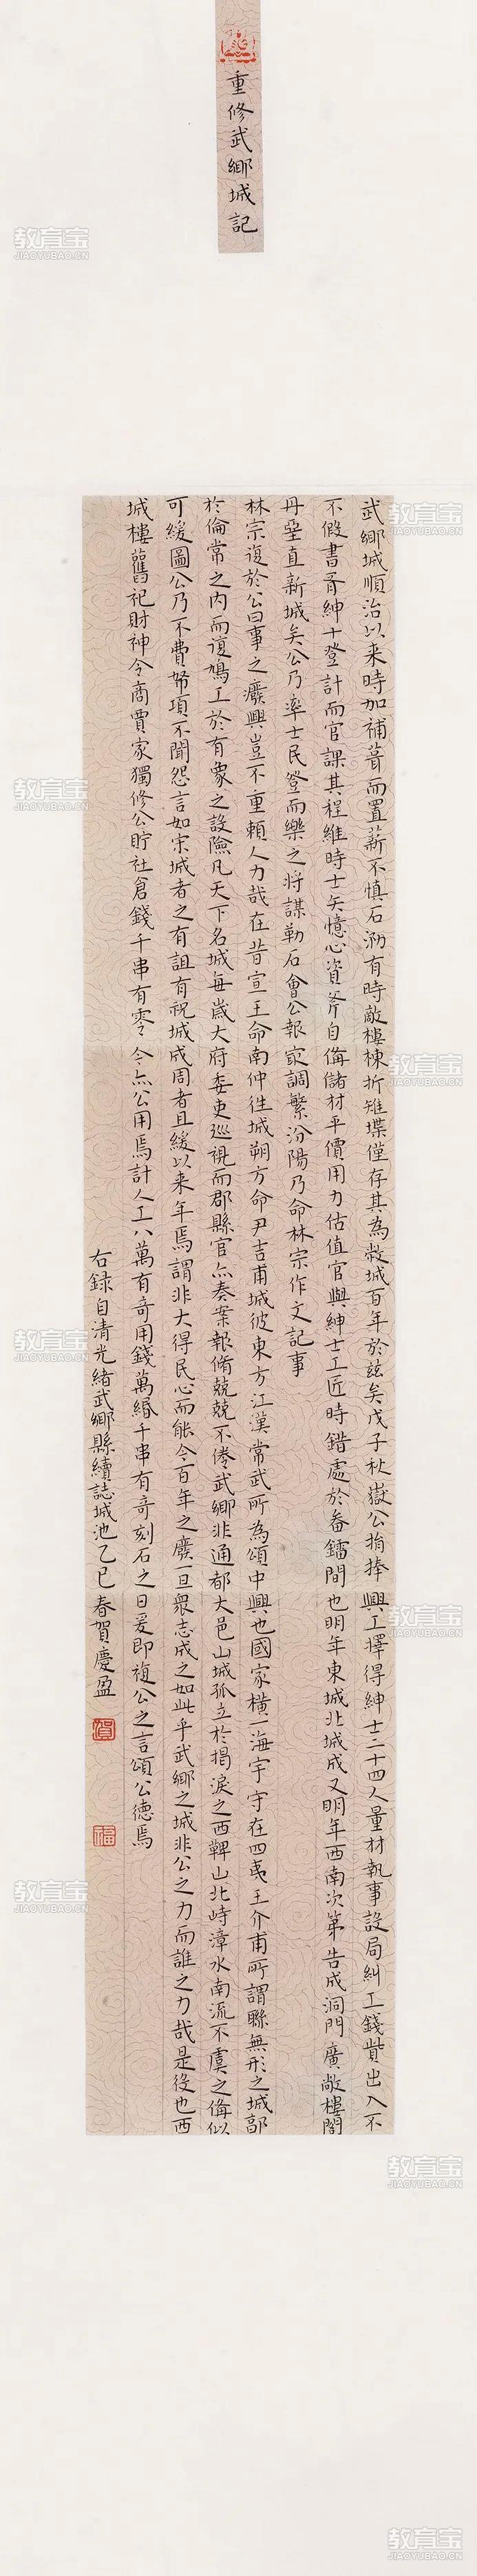 重修武鄉城記
武鄉城順治以来時加補葺而置薪不慎石泐有時敵樓棟折雉堞僅存其為穀城百年於茲矣戊子秋嶽公捐捧興工擇得紳士二十四人量材執事設局糾工錢貲出入不
不假書胥紳士登計而官課其程維時士矢憶心資斧自備儲材平價用力估值官與紳士工匠時錯處於畚鐳間也明年東城北城成又明年西南次第告成洞門廣敞樓閣
丹堊直新城矣公乃率士民登而樂之將謀勒石會公報家調繁汾陽乃命林宗作文記事
林宗復於公曰事之廢興豈不重賴人力哉在昔宣王命南仲徃城朔方命尹吉甫城彼東方江漢常武所為頌中興也國家橫一海宇守在四夷王介甫所謂縣無形之城郭
於倫常之内而復鳩工於有象之設險凡天下名城每歲大府委吏巡視而郡縣官亦奏案報脩兢兢不倦武鄉非通都大邑山城孤立於揭淚之西鞞山北峙漳水南流不虞之備似
可緩圖公乃不費帑項不聞怨言如宋城者之有詛有祝城成周者且緩以来年焉謂非大得民心而能令百年之廢一旦衆志成之如此乎武鄉之城非公之力而誰之力哉是役也西
城樓舊祀財神令商賈家獨修公貯社倉錢千串有零今亦公用焉計人工八萬有奇用錢萬緡千串有奇刻石之日爰即複公之言頌公德焉
右録自清光緒武鄉縣續誌城池乙巳春賀慶盈
賀
福
教育宝
JIAOYUBAO.CN
教育宝
JIAOYUBAO.CN
教育宝
JIAOYUBAO.CN
教育宝
JIAOYUBAO.CN
教育宝
JIAOYUBAO.CN
教育宝
JIAOYUBAO.CN
教育宝
JIAOYUBAO.CN
教育宝
JIAOYUBAO.CN
教育宝
JIAOYUBAO.CN
教育宝
JIAOYUBAO.CN
教育宝
JIAOYUBAO.CN